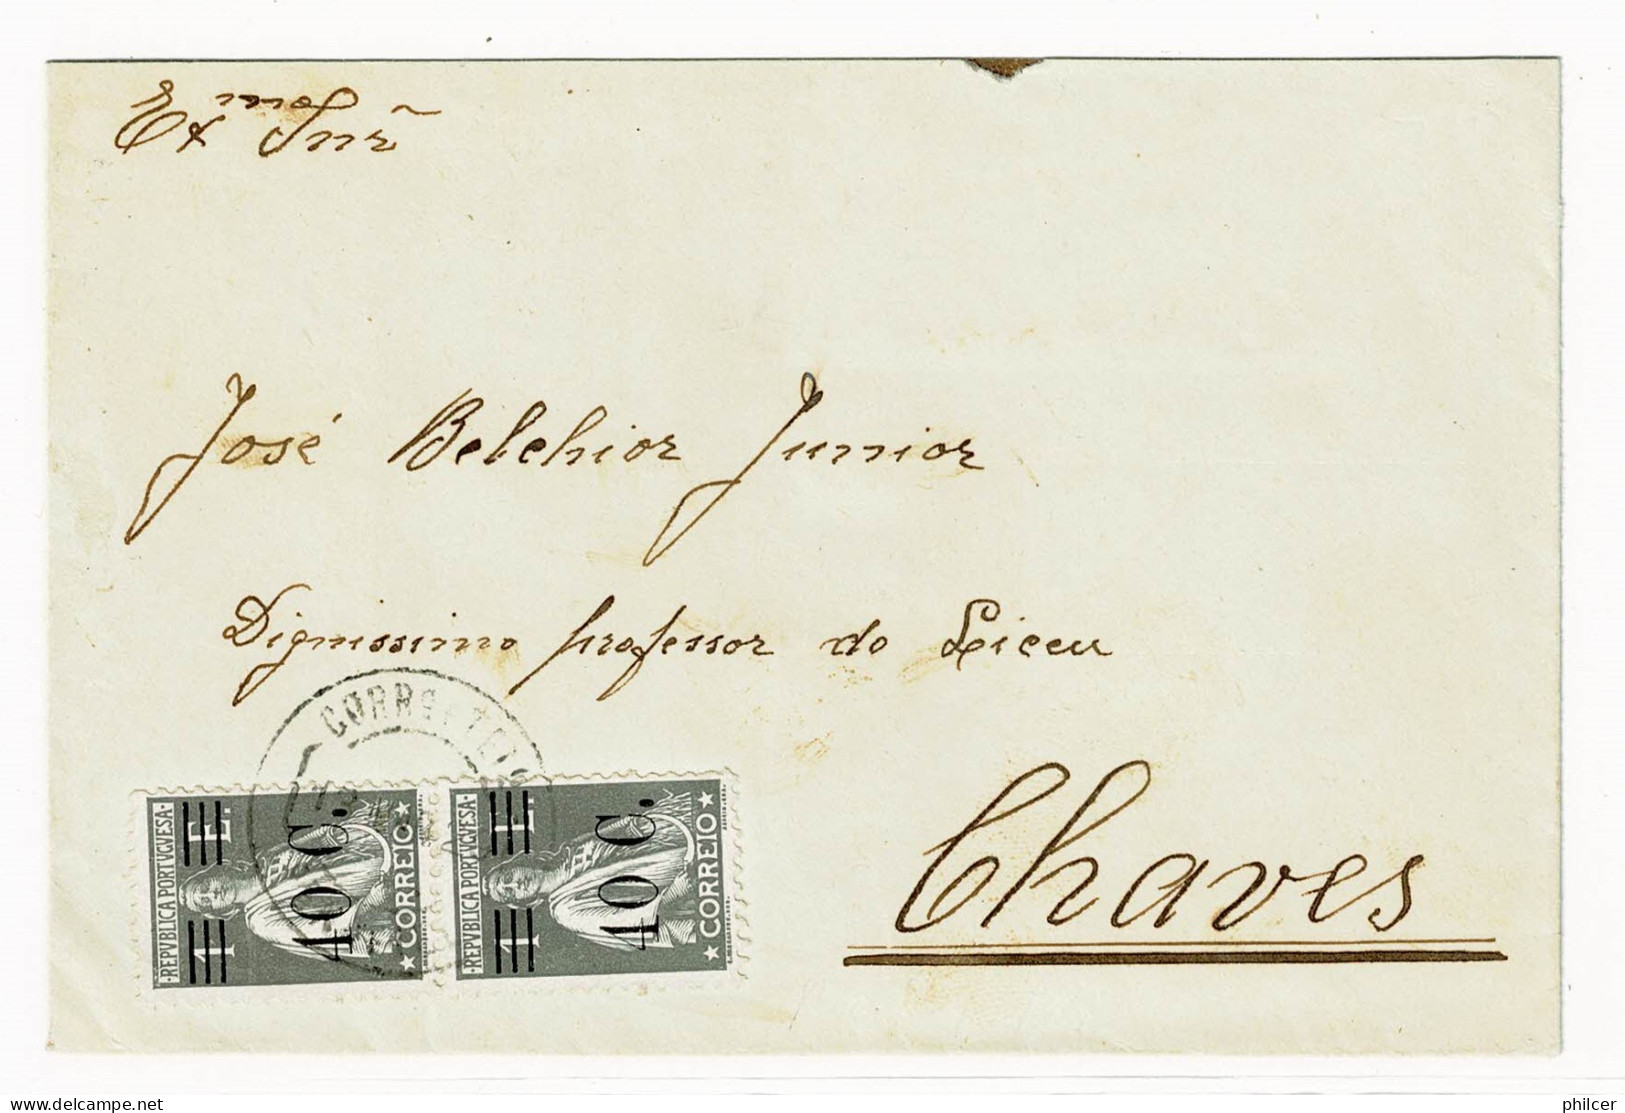 Exmo Snr
José Belchior Junior
Dignissimo professor do Liceu
Chaves
CORRO
·REPVBLICA PORTVGVESA·
1 E.
40 C.
★ CORREIO ★
·REPVBLICA PORTVGVESA·
1 E.
40 C.
★ CORREIO ★
delcampe.net
philcer